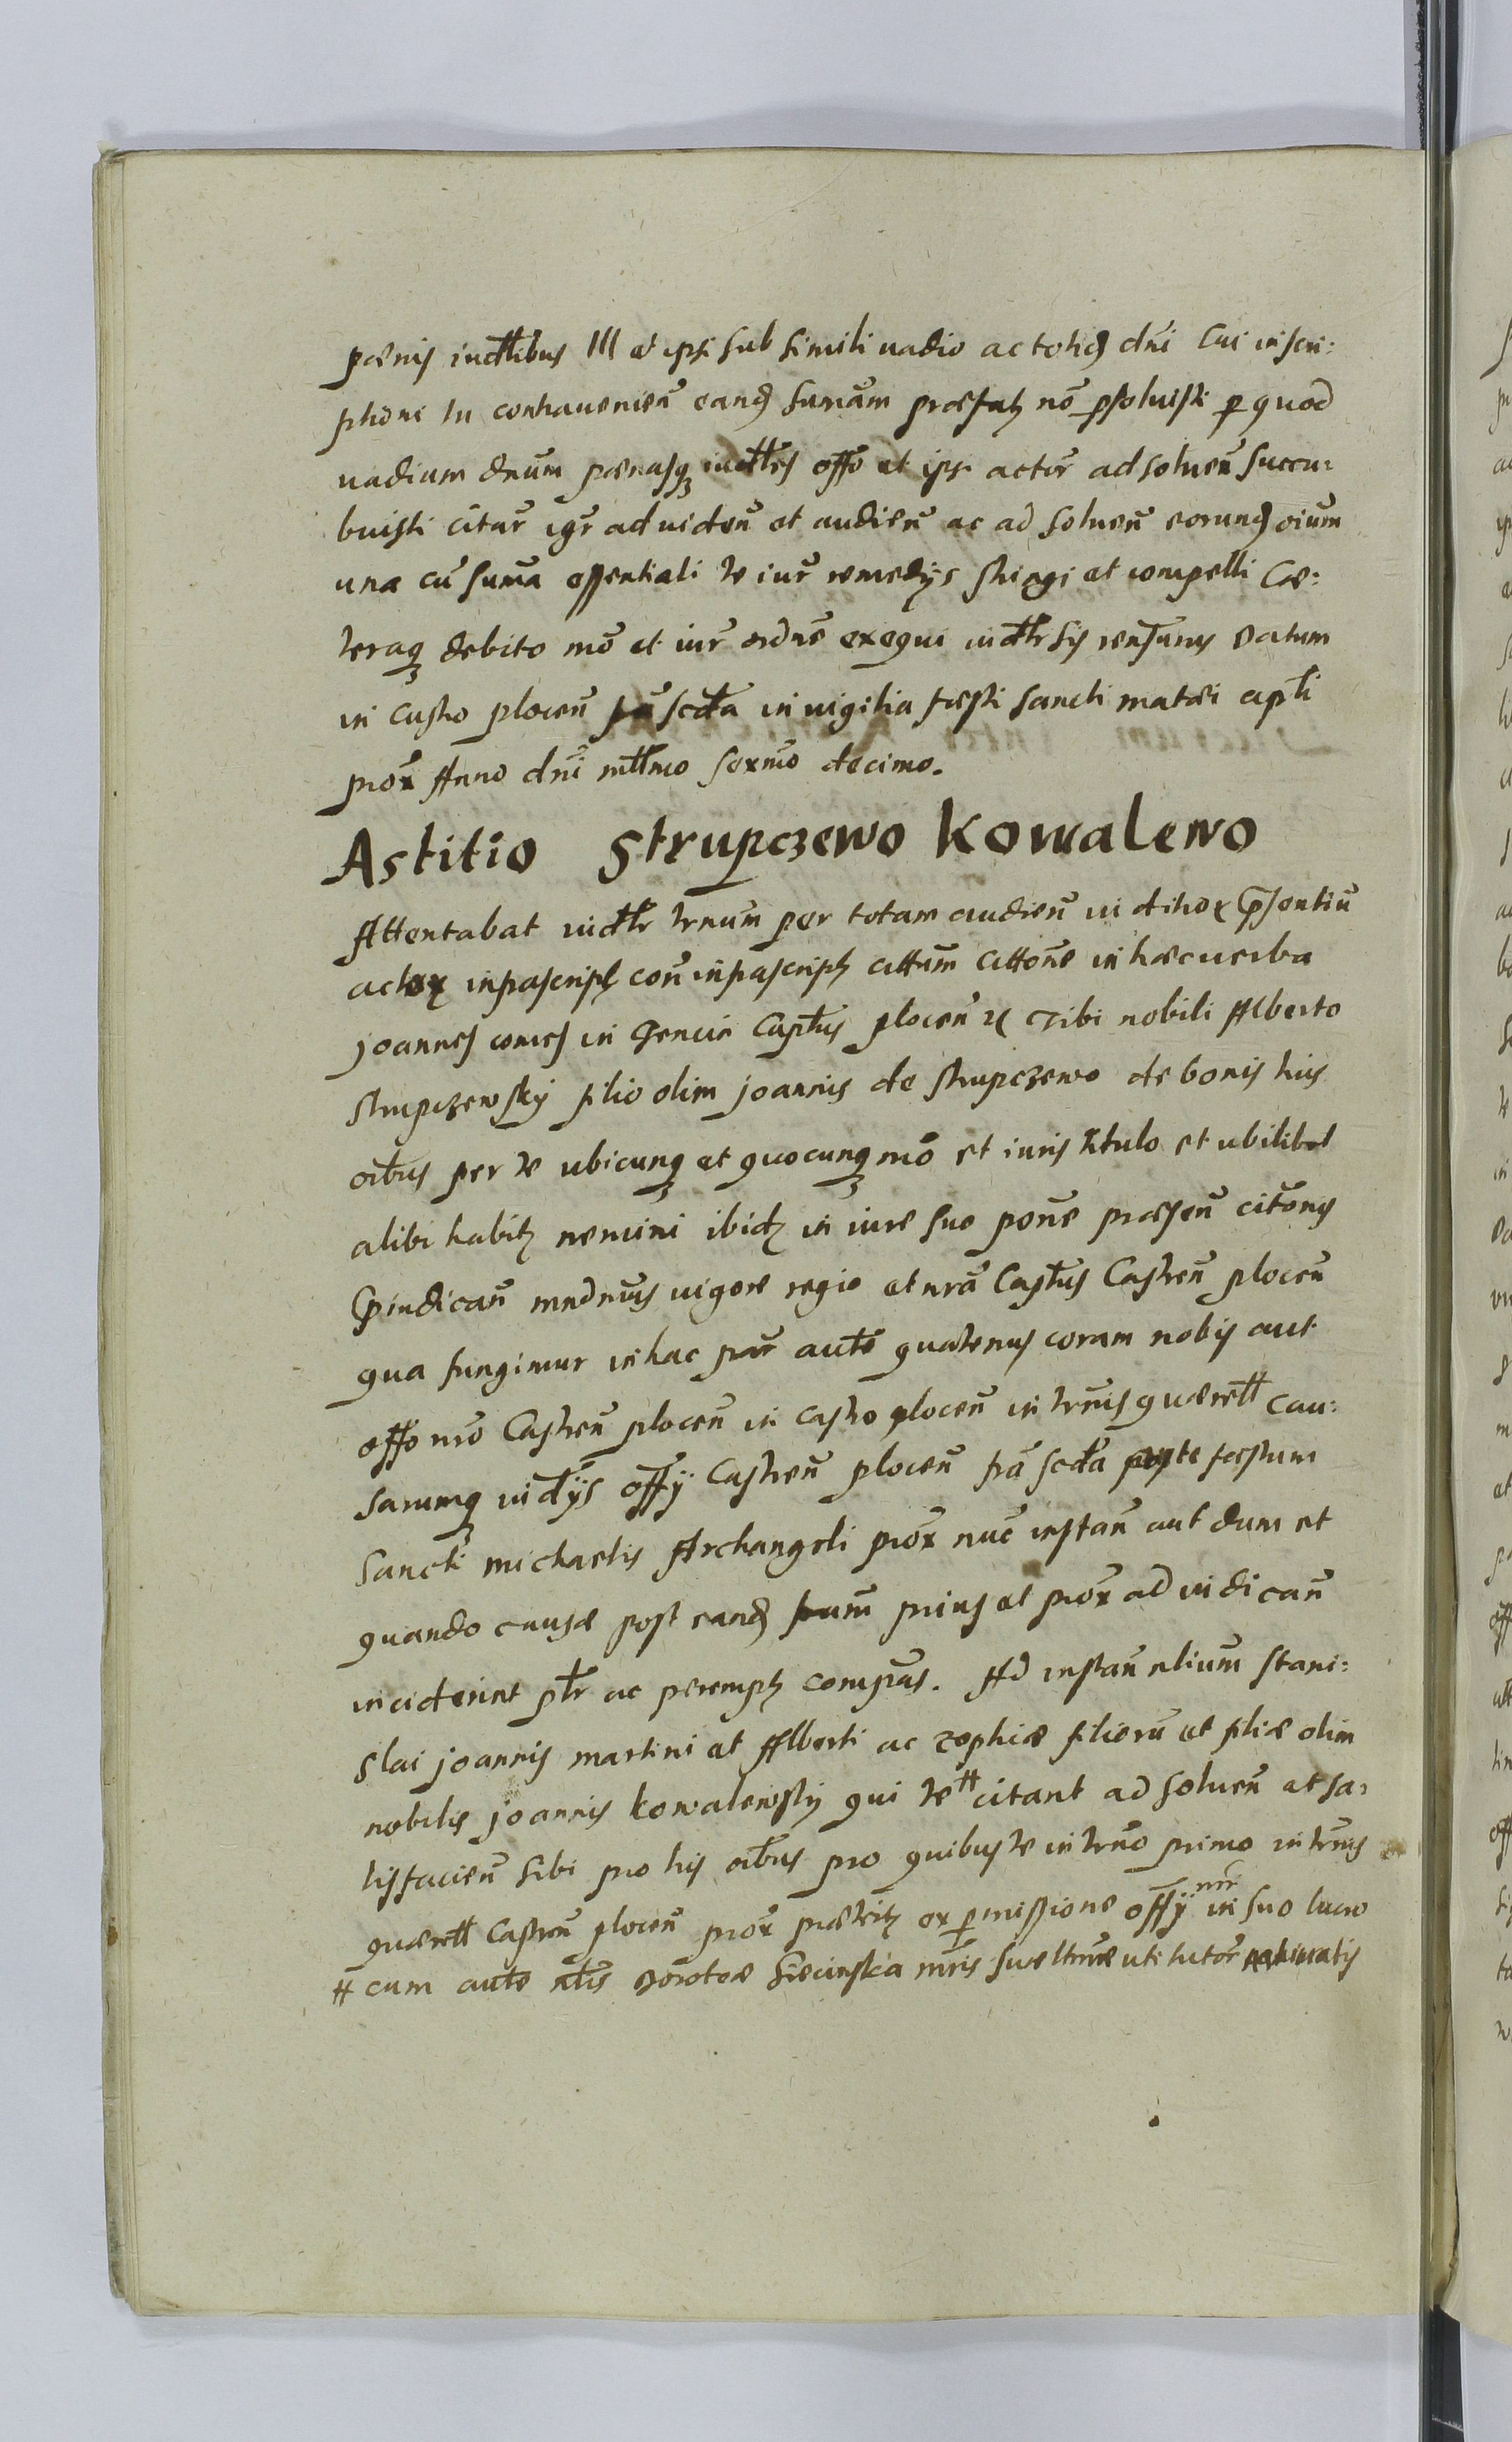 pœnis iudtlibus III et ipsi sub simili vadio ac totiq dni Cui inscri:
ptioni tu contravenien eanq sumam præfatz nō psolvisti p quod
vadium dnum pœnasqz iudtles offo et ipsi actor ad solven succu:
buisti citar igr ad viden et audien ac ad solven eorunq oium
una cū suma essentiali te iur remedÿs stringi et compelli Cæ:
teraqz debito mō et iur ordne exequi iudtlr sis rensurus Datum
in Castro plocen fa scda in vigilia fæsti sancti matæi aptli
prox Anno dni mtlmo sexmo decimo.
Astitio Strupczewo Kowalewo
Attentabat iudtlr trnum per totam audien iudicior psentiū
actor infrascriptz con infrascriptz cittum cittone in hæc verba
Joannes comes in Gencin Captus plocen Tibi nobili Alberto
Strupczewsky filio olim Joannis de Strupczewo de bonis tuis
oibus per te ubicunqz et quocunqz mō et iuris titulo et ubilibet
alibi habitz nemini ibidz in iure suo pone præsen citons
piudican mndmus vigore regio et nra Captus Castren plocen
qua fungimur in hac par aute quatenus coram nobis aut
offo nro Castren plocen in castro plocen in trnis quæretl cau:
sarumqz iudÿs offÿ Castren plocen fa scda poste fæstum
Sancti michaelis Archangeli prox nuc instan aut dum et
quando causæ post eanq fam prius et prox ad iudican
inciderint ptlr ac peremptz compas. Ad instan nlium Stani:
slai joannis martini et Alberti ac zophiæ filioru et filiæ olim
nobilis joannis kowalewsky qui te # citant ad solven et sa:
tisfacien sibi pro his oibus pro quibus te in trno primo in trnis
quæretl Castren plocen prox præteritz ex pmissione offÿ nri in suo lucro
# cum aute nlis Dorotæ Siecinska mris suæ uti tutor